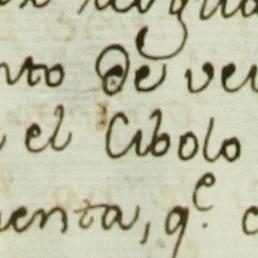 nto de ve
el Cibolo
enta, q.e